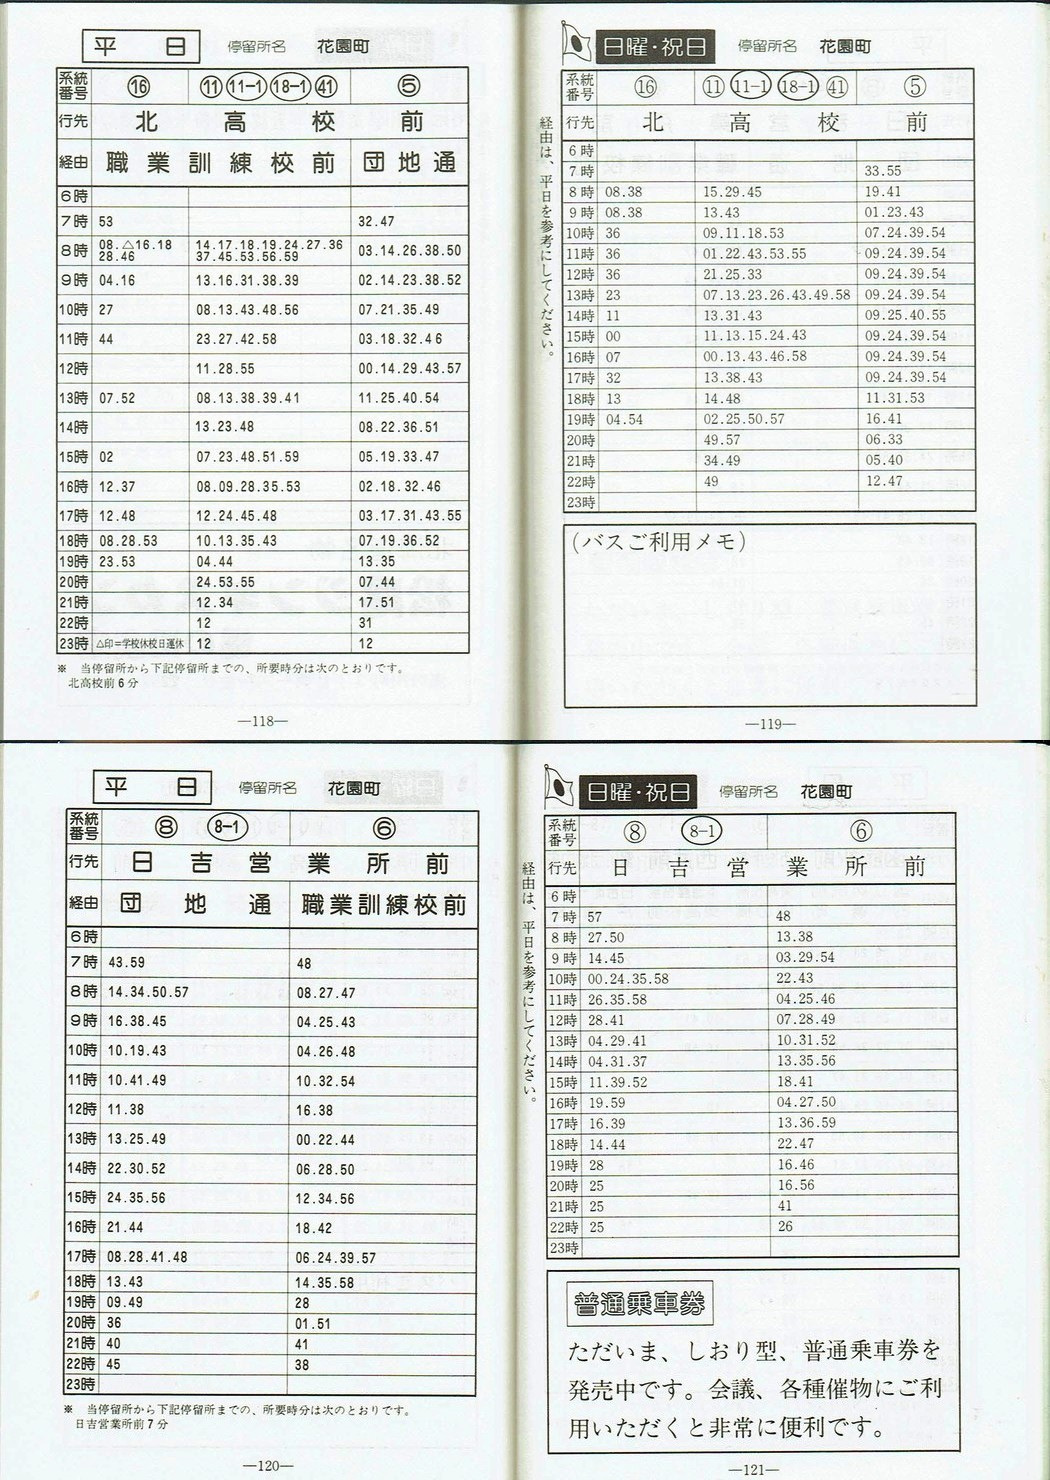 平 日 停留所名 花園町
系統番号 ⑯ ⑪ 11-1 18-1 ㊶ ⑤
行先 北 高 校 前
経由 職業訓練校前 団地通
6時
7時 53 32.47
8時 08.△16.18 14.17.18.19.24.27.36 03.14.26.38.50
28.46 37.45.53.56.59
9時 04.16 13.16.31.38.39 02.14.23.38.52
10時 27 08.13.43.48.56 07.21.35.49
11時 44 23.27.42.58 03.18.32.46
12時 11.28.55 00.14.29.43.57
13時 07.52 08.13.38.39.41 11.25.40.54
14時 13.23.48 08.22.36.51
15時 02 07.23.48.51.59 05.19.33.47
16時 12.37 08.09.28.35.53 02.18.32.46
17時 12.48 12.24.45.48 03.17.31.43.55
18時 08.28.53 10.13.35.43 07.19.36.52
19時 23.53 04.44 13.35
20時 24.53.55 07.44
21時 12.34 17.51
22時 12 31
23時 △印=学校休校日運休 12 12
※ 当停留所から下記停留所までの、所要時分は次のとおりです。
北高校前6分
—118—
日曜・祝日 停留所名 花園町
経由は、平日を参考にしてください。
系統番号 ⑯ ⑪ 11-1 18-1 ㊶ ⑤
行先 北 高 校 前
6時
7時 33.55
8時 08.38 15.29.45 19.41
9時 08.38 13.43 01.23.43
10時 36 09.11.18.53 07.24.39.54
11時 36 01.22.43.53.55 09.24.39.54
12時 36 21.25.33 09.24.39.54
13時 23 07.13.23.26.43.49.58 09.24.39.54
14時 11 13.31.43 09.25.40.55
15時 00 11.13.15.24.43 09.24.39.54
16時 07 00.13.43.46.58 09.24.39.54
17時 32 13.38.43 09.24.39.54
18時 13 14.48 11.31.53
19時 04.54 02.25.50.57 16.41
20時 49.57 06.33
21時 34.49 05.40
22時 49 12.47
23時
(バスご利用メモ)
—119—
平 日 停留所名 花園町
系統番号 ⑧ 8-1 ⑥
行先 日吉営業所前
経由 団地通 職業訓練校前
6時
7時 43.59 48
8時 14.34.50.57 08.27.47
9時 16.38.45 04.25.43
10時 10.19.43 04.26.48
11時 10.41.49 10.32.54
12時 11.38 16.38
13時 13.25.49 00.22.44
14時 22.30.52 06.28.50
15時 24.35.56 12.34.56
16時 21.44 18.42
17時 08.28.41.48 06.24.39.57
18時 13.43 14.35.58
19時 09.49 28
20時 36 01.51
21時 40 41
22時 45 38
23時
※ 当停留所から下記停留所までの、所要時分は次のとおりです。
日吉営業所前7分
—120—
日曜・祝日 停留所名 花園町
経由は、平日を参考にしてください。
系統番号 ⑧ 8-1 ⑥
行先 日吉営業所前
6時
7時 57 48
8時 27.50 13.38
9時 14.45 03.29.54
10時 00.24.35.58 22.43
11時 26.35.58 04.25.46
12時 28.41 07.28.49
13時 04.29.41 10.31.52
14時 04.31.37 13.35.56
15時 11.39.52 18.41
16時 19.59 04.27.50
17時 16.39 13.36.59
18時 14.44 22.47
19時 28 16.46
20時 25 16.56
21時 25 41
22時 25 26
23時
普通乗車券
ただいま、しおり型、普通乗車券を
発売中です。会議、各種催物にご利
用いただくと非常に便利です。
—121—